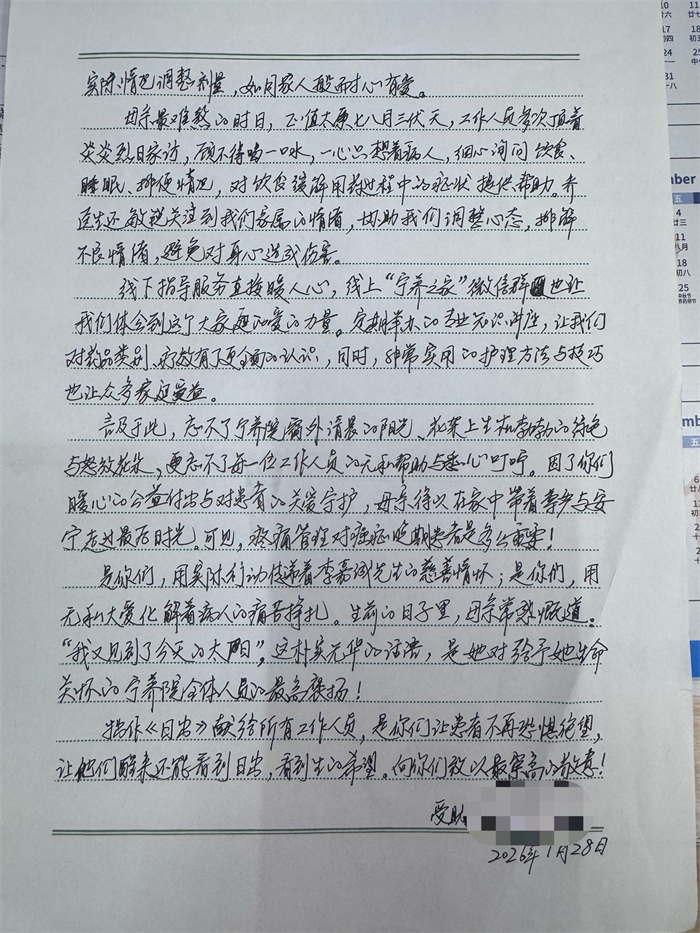 实际情况调整剂量，如同家人般耐心有爱。
母亲最难熬的时日，正值太原七八月三伏天，工作人员多次顶着
炎炎烈日家访，顾不得喝一口水，一心只想着病人，细心询问饮食、
睡眠、排便情况，对饮食缓解用药过程中的症状提供帮助。乔
医生还敏锐关注到我们家属的情绪，协助我们调整心态，排解
不良情绪，避免对身心造成伤害。
线下指导服务直接暖人心，线上“宁养之家”微信群也让
我们体会到这个大家庭的爱的力量。定期举办的专业知识讲座，让我们
对药品类别、疗效有了更全面的认识，同时，非常实用的护理方法与技巧
也让众多家庭受益。
言及于此，忘不了宁养院窗外清晨的阳光、花架上生机勃勃的绿色
与怒放花朵，更忘不了每一位工作人员的无私帮助与悉心叮咛。因了你们
暖心的公益付出与对患者的关爱守护，母亲得以在家中带着尊严与安
宁走过最后时光。可见，疼痛管理对癌症晚期患者是多么重要！
是你们，用实际行动传递着李嘉诚先生的慈善情怀；是你们，用
无私大爱化解着病人的痛苦挣扎。生前的日子里，母亲常感慨道：
“我又见到了今天的太阳”，这朴实无华的话语，是她对给予她生命
关怀的宁养院全体人员的最高褒扬！
拙作《日出》献给所有工作人员，是你们让患者不再恐惧绝望，
让他们醒来还能看到日出，看到生的希望。向你们致以最崇高的敬意！
受助
2026年1月28日